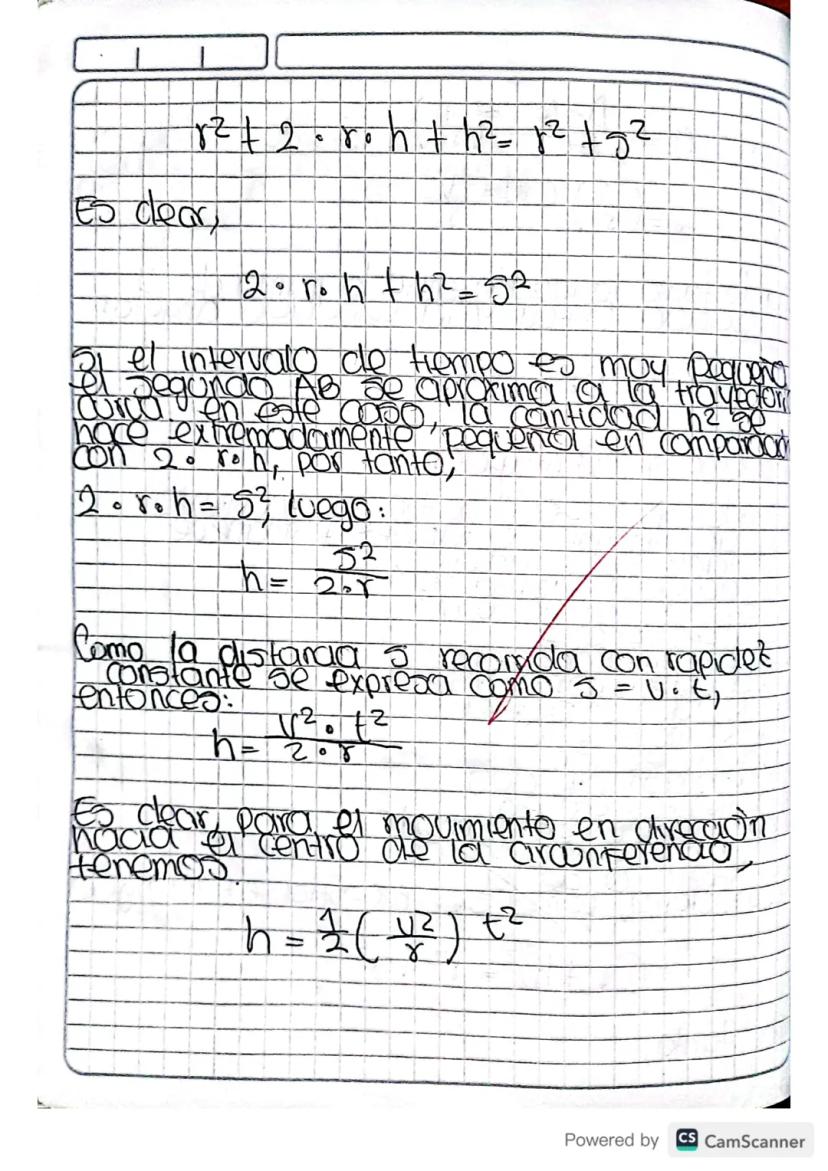 r² + 2 · r · h + h² = r² + s²
Es decir,
2 · r · h + h² = s²
Si el intervalo de tiempo es muy pequeño
el segundo AB se aproxima a la trayectori
curva en este caso, la cantidad h² se
hace extremadamente pequeña en comparación
con 2 · r · h, por tanto,
2 · r · h = s², luego:
h = s² / 2 · r
Como la distancia s recorrida con rapidez
constante se expresa como s = v · t,
entonces:
h = v² · t² / 2 · r
Es decir, para el movimiento en dirección
hacia el centro de la circunferencia,
tenemos
h = 1/2 (v²/r) t²
Powered by CS CamScanner